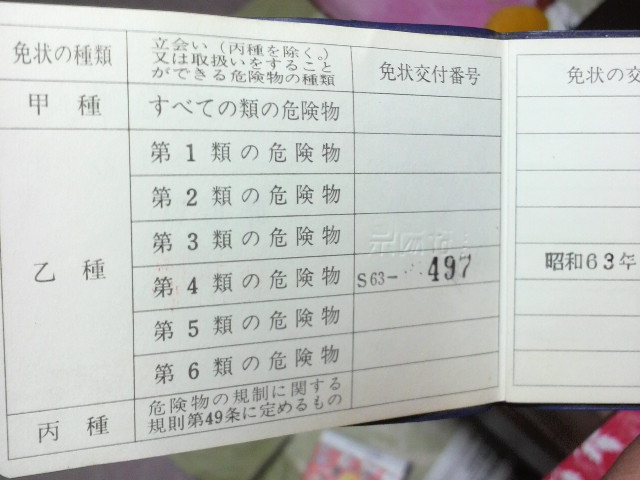 免状の種類
立会い（丙種を除く。）
又は取扱いをすること
ができる危険物の種類
免状交付番号
免状の交
甲種
すべての類の危険物
乙種
第1類の危険物
第2類の危険物
第3類の危険物
第4類の危険物
S63-
497
昭和63年
第5類の危険物
第6類の危険物
丙種
危険物の規制に関する
規則第49条に定めるもの